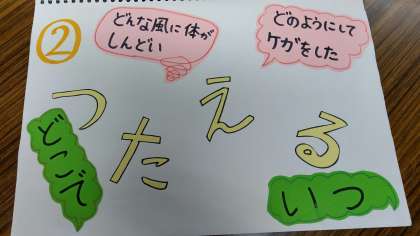 ②
どんな風に体が
しんどい
どのようにして
ケガをした
つたえる
どこで
いつ